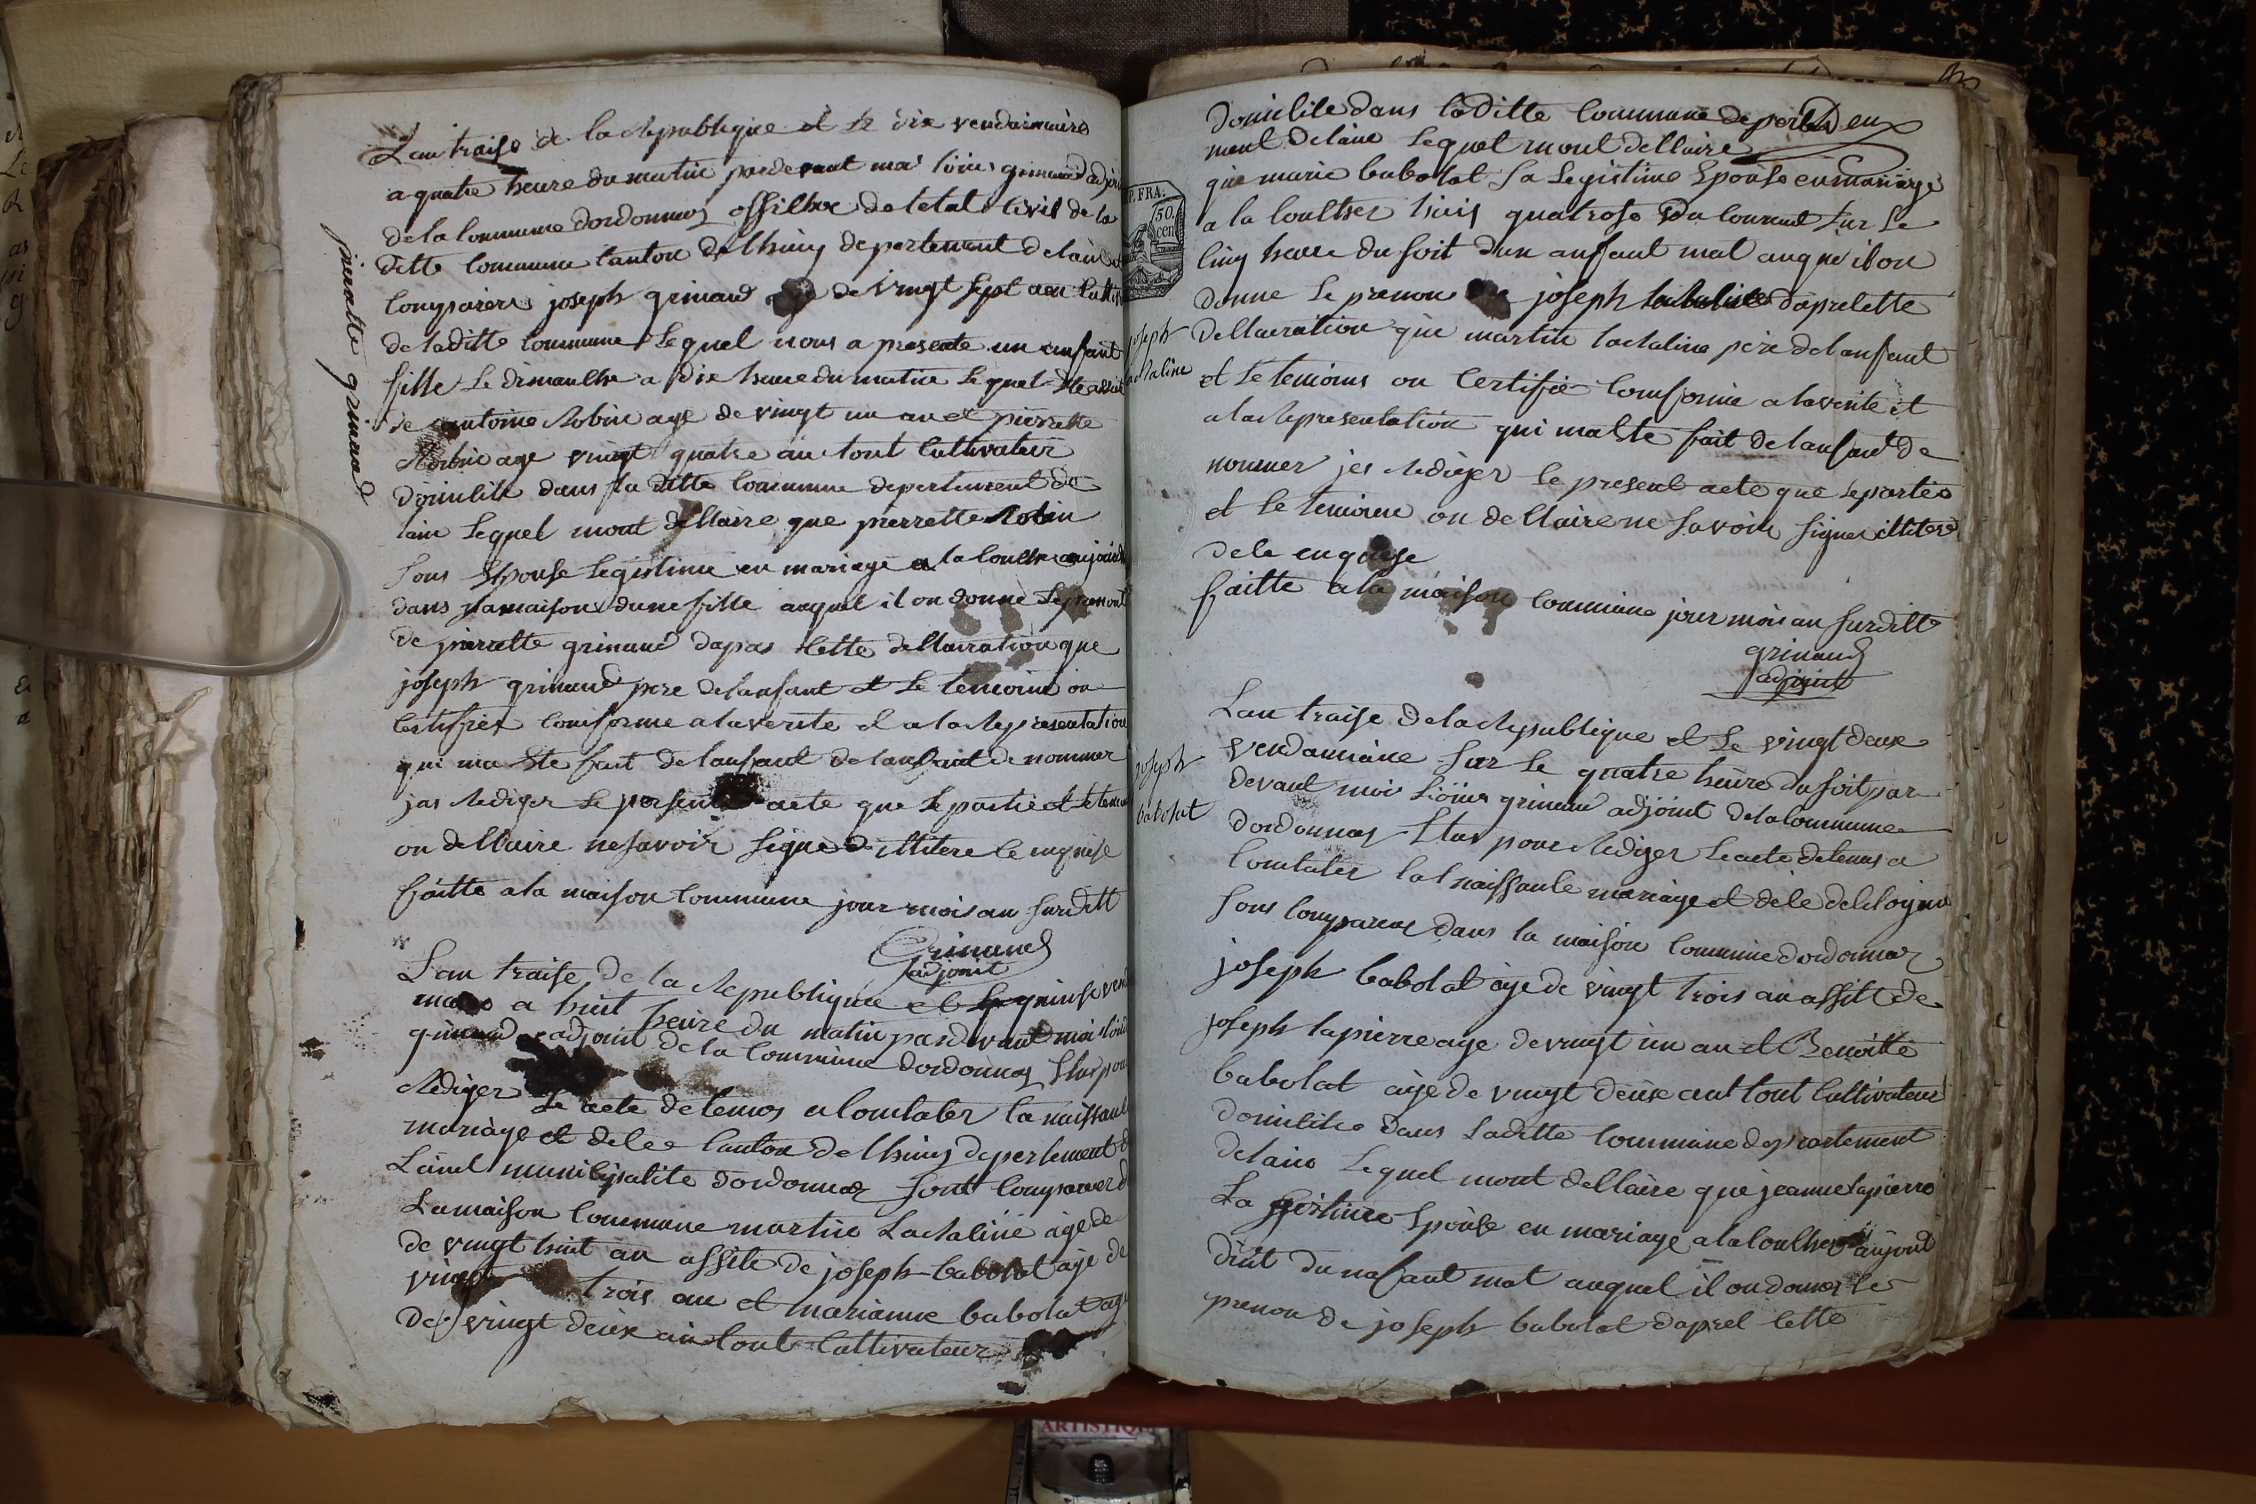 pierrette grimaud
Lan traise de la Republique et le dix vendaimaire
a quatre heure du matin pardevant moi grimaud adjoint
de la Commune dordonnas offilhee de letat livil de la
ditte Commune Canton de lhuis departement de lain
Comparere joseph grimaud age de vingt sept an
de laditte Commune Lequel nous a presente un anfant
fille Le dimanlhe a dix heure du matin Lequel
de antoine Robin age de vingt un an et pierrette
Robin age vingt quatre an tout Cultivateur
domilile dans la ditte Commune departement de
lain Lequel mont dellaire que pierrette Robin
Sons Epouse Legistime en mariage a la Coulhe aujourd
dans sa maison dune fille auquel il on donne Le prenont
de pierrette grimaud dapres Cette dellairation que
joseph grimaud pere de lanfant et Le temoint on
Certifiet Conforme a la verite et a la Representation
qui ma Ete fait de lanfant de lanfant de nommer
jas Rediger Le persent acte que Le partie et Le temoi
on dellaire ne savoir signe de illitere le enquise
faitte a la maison Commune jour mois an surditt
Grimaud
adjoint
Lan traise de la Republique et Le quinse ven
maire a huit heure du matin pardevant moi
grimaud adjoint de la Commune dordonnas Elus pour
Rediger Le acte detemos a Contater la naissanle
mariage et dele Canton de lhuis departement d
Lainel munilipalite dordonnas sont Comparer d
La maison Commune martin Lactaline age de
de vingt huit an assite de joseph babolat age de
vingt trois an et marianne babolat age
de vingt deux an tout Cultivateur
P. FRA.
50.
cen
joseph
lactaline
domilile dans laditte Commune departen
ment delain Lequel mont dellaire
que marie babolat sa Legistime Epouse en mariage
a la Coulhes quatrose du Courant sur Le
linq heure du soit dun anfant mal auque il on
donne Le prenon de joseph lactaline daprelette
dellairation que martin lactaline pere delanfant
et Le temoins on Certifie Conforme a laverite et
a la Representation qui ma Ete fait de lanfant de
nommer jes Rediger Le present acte que Le partie
et Le temoine on dellaire ne savoir signer illitere
dele enquise
faitte a la maison Commune jour mois an surditte
grimaud
adjoint
joseph
babolat
Lan traise de la Republique et Le vingt deux
vendaimaire sur Le quatre heure du soit par
devant moi grimaud adjoint de la Commune
dordonnas Elus pour Rediger Le acte detemus a
Contater la naissanle mariage et dele
sons Comparus dans la maison Commune dordonnas
joseph babolat age de vingt trois an assitt de
joseph lapierre age de vingt un an et Benoitte
babolat age de vingt deux ant tout Cultivateur
domililie dans laditte Commune departement
delain Lequel mont dellaire que jeanne lapierre
La Epouse en mariage a la Coulher aujourd
duit dunanfant mal auquel il on donner Le
prenon de joseph babolat daprel Cette
ARTISTIQU